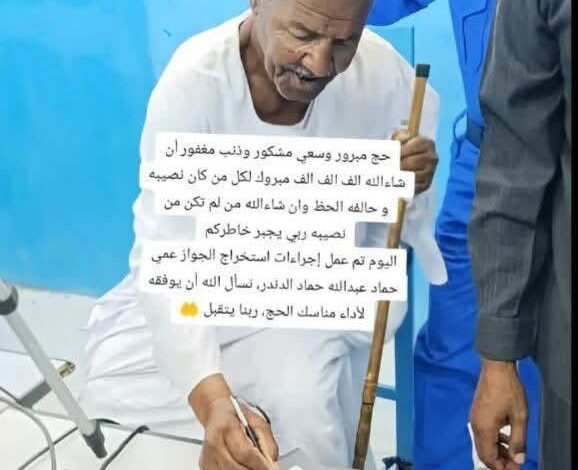 حج مبرور وسعي مشكور وذنب مغفور أن
شاءالله الف الف الف مبروك لكل من كان نصيبه
و حالفه الحظ وان شاءالله من لم تكن من
نصيبه ربي يجبر خاطركم
اليوم تم عمل إجراءات استخراج الجواز عمي
حماد عبدالله حماد الدندر، نسأل الله أن يوفقه
لأداء مناسك الحج، ربنا يتقبل 🤲